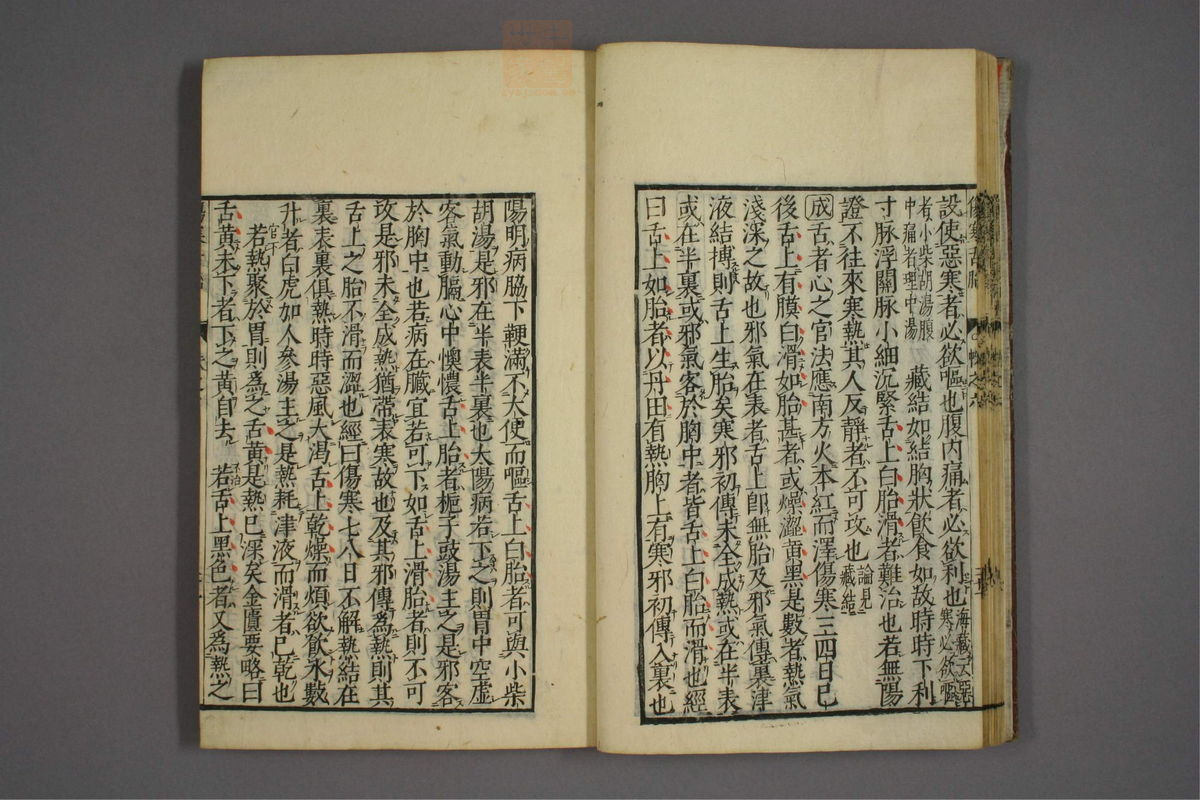 設使惡寒者必欲嘔也腹內痛者必欲利也海藏云惡寒必欲嘔
者小柴胡湯腹中痛者理中湯　藏結如結胸狀飲食如故時時下利
寸脉浮關脉小細沉緊舌上白胎滑者難治也若無陽
證不往來寒熱其人反靜者不可攻也論見藏結
成舌者心之官法應南方火本紅而澤傷寒三四日已
後舌上有膜白滑如胎甚者或燥澀黃黑是數者熱氣
淺深之故也邪氣在表者舌上卽無胎及邪氣傳裏津
液結摶則舌上生胎矣寒邪初傳未全成熱或在半表
或在半裏或邪氣客於胸中者皆舌上白胎而滑也經
曰舌上如胎者以丹田有熱胸上有寒邪初傳入裏也
陽明病脇下鞕滿不大便而嘔舌上白胎者可與小柴
胡湯是邪在半表半裏也太陽病若下之則胃中空虛
客氣動膈心中懊憹舌上胎者梔子豉湯主之是邪客
於胸中也若病在臟宜若可下如舌上滑胎者則不可
攻是邪未全成熱猶帶表寒故也及其邪傳爲熱則其
舌上之胎不滑而澀也經曰傷寒七八日不解熱結在
裏表裏俱熱時時惡風大渴舌上乾燥而煩欲飲水數
升者白虎加人參湯主之是熱耗津液而滑者已乾也
若熱聚於胃則爲之舌黃是熱已深矣金匱要略曰
舌黃未下者下之黃自去　若舌上黑色者又爲熱之